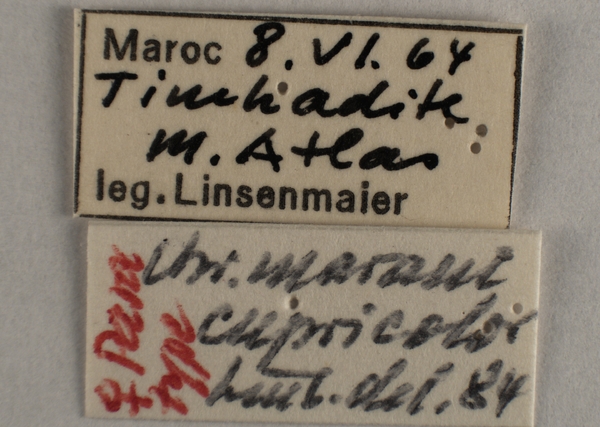 Maroc 8.VI.64
Timhadite
M. Atlas
leg. Linsenmaier
Chr. marani
cupricolor
Lins. det. 84
♀ Para
type